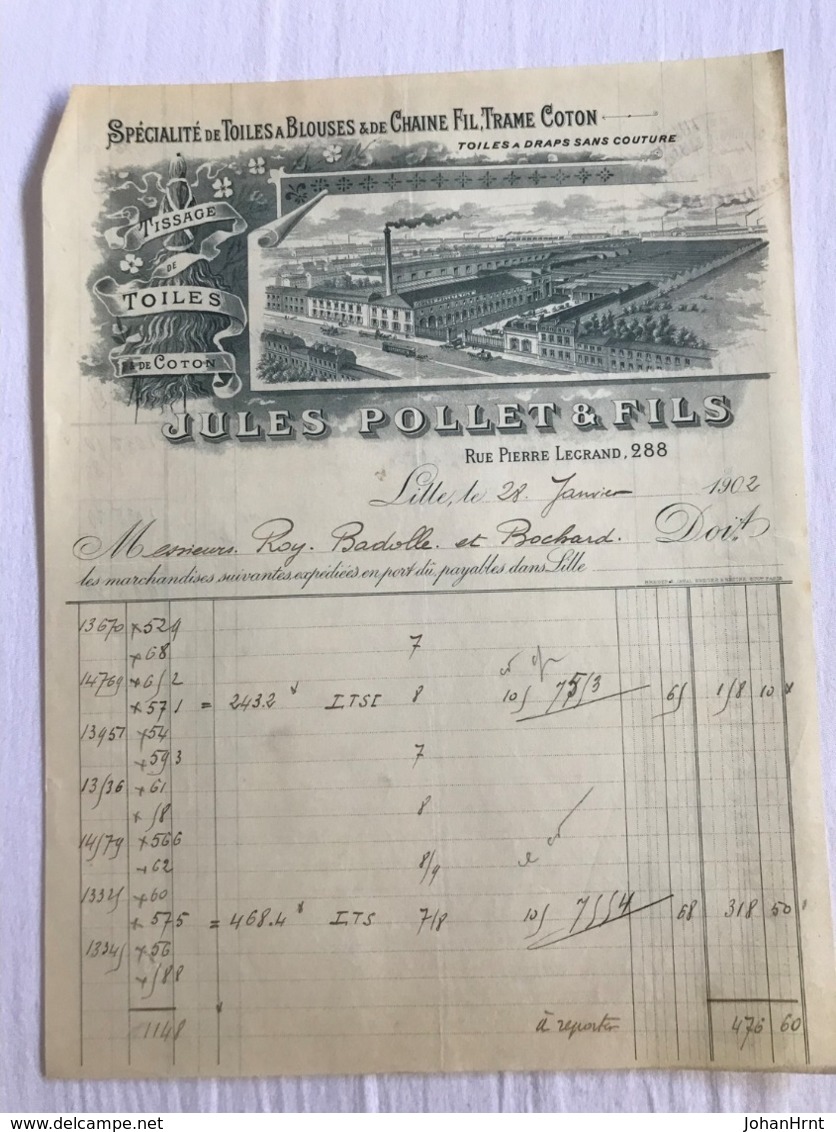 SPÉCIALITÉ DE TOILES A BLOUSES & DE CHAINE FIL, TRAME COTON
TOILES A DRAPS SANS COUTURE
TISSAGE
DE
TOILES
& DE COTON
JULES POLLET & FILS
RUE PIERRE LEGRAND, 288
Lille, le 28 Janvier 1902
Messieurs Roy. Badolle. et Bochard. Doit
les marchandises suivantes, expédiées en port dû, payables dans Lille
13670 x 529
x 68 7
14769 x 652
x 571 = 243.2 ITSI 8 105 7553 65 158 10
13951 x 54
x 593 7
13536 x 61
x 58 8
14579 x 566
x 62 8/9
13325 x 60
x 575 = 468.4 ITS 7/8 105 7554 68 318 50
13345 x 56
x 588
1148 à reporter 476 60
delcampe.net
JohanHrnt